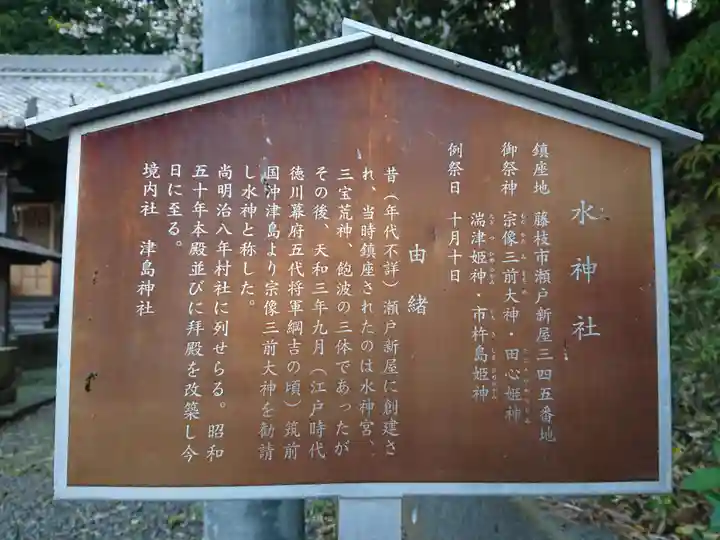 水神社
鎮座地　藤枝市瀬戸新屋三四五番地
御祭神　宗像三前大神・田心姫神
湍津姫神・市杵島姫神
例祭日　十月十日
由緒
昔（年代不詳）瀬戸新屋に創建さ
れ、当時鎮座されたのは水神宮、
三宝荒神、飽波の三体であったが
その後、天和三年九月（江戸時代
徳川幕府五代将軍綱吉の頃）筑前
国沖津島より宗像三前大神を勧請
し水神と称した。
尚明治八年村社に列せらる。昭和
五十年本殿並びに拝殿を改築し今
日に至る。
境内社　津島神社